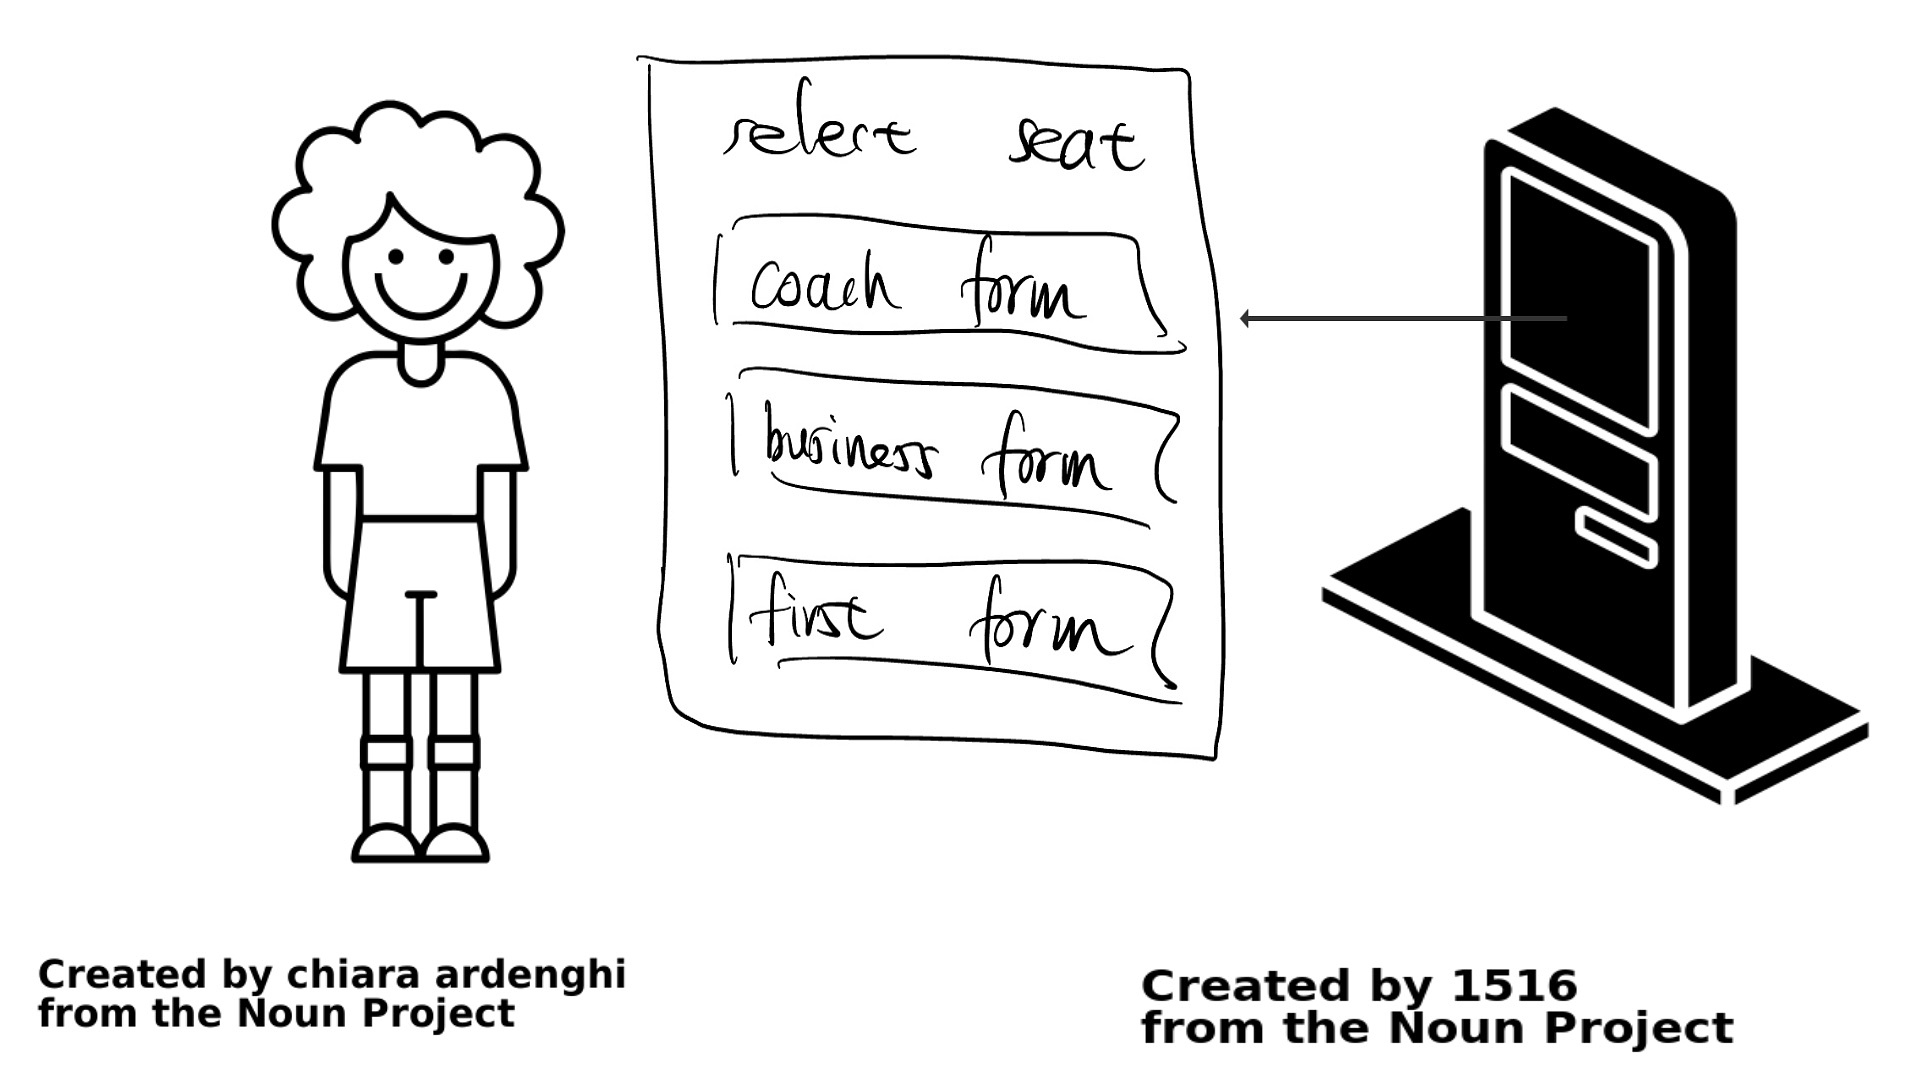 select seat
coach form
business form
first form
Created by chiara ardenghi
from the Noun Project
Created by 1516
from the Noun Project